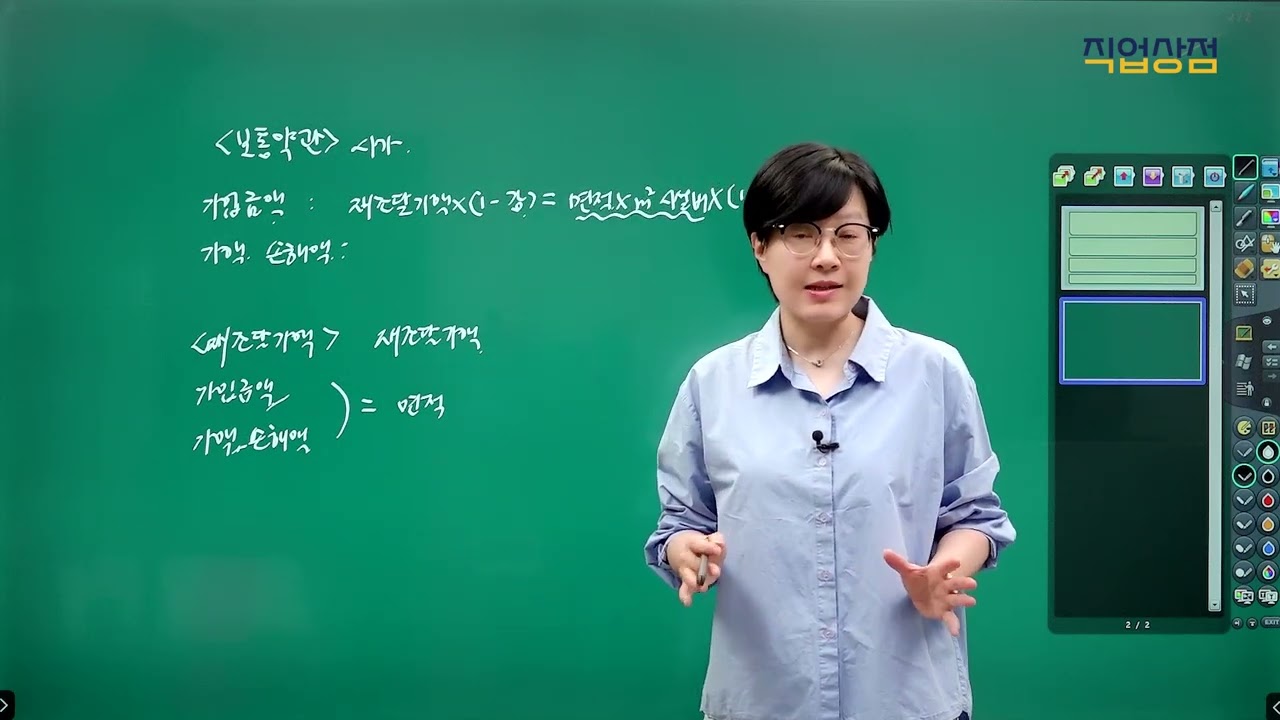 직업상점
<보통약관> 시가.
가입금액 : 재조달가액X(1-감) = 면적X㎡ 시설비X(1
가액. 손해액 :
<재조달가액> 재조달가액.
가입금액
가액. 손해액 ) = 면적
2 / 2
EXIT